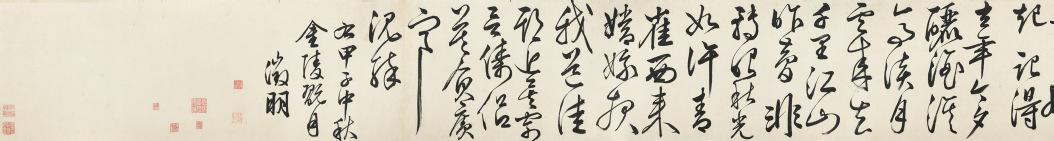 起記得
去年今夕
釃酒溪
亭淡月
雲來去
千里江山
昨夢非
轉眼秋光
如許青
雀西來
嫦娥報
我道佳
期近矣寄
言儔侶
莫負廣
寒
沉醉
右甲子中秋
金陵翫月
徵明